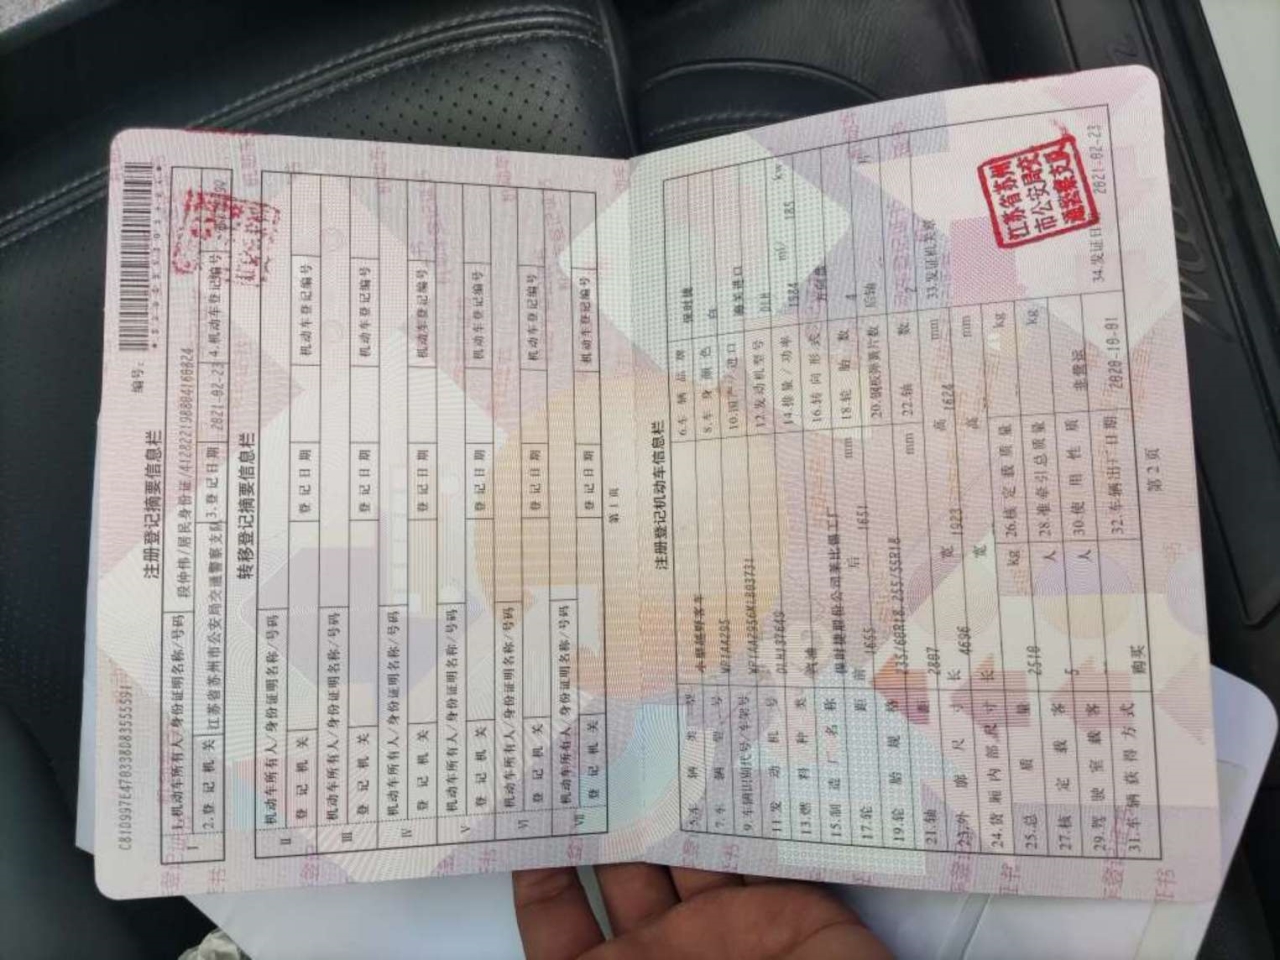 注册登记摘要信息栏
编号:
1.机动车所有人/身份证明名称/号码 段仲伟/居民身份证/412822198804160824
2.登记机关 江苏省苏州市公安局交通警察支队 3.登记日期 2021-02-23 4.机动车登记编号
转移登记摘要信息栏
II 机动车所有人/身份证明名称/号码
登记机关 登记日期 机动车登记编号
III 机动车所有人/身份证明名称/号码
登记机关 登记日期 机动车登记编号
IV 机动车所有人/身份证明名称/号码
登记机关 登记日期 机动车登记编号
V 机动车所有人/身份证明名称/号码
登记机关 登记日期 机动车登记编号
VI 机动车所有人/身份证明名称/号码
登记机关 登记日期 机动车登记编号
VII 机动车所有人/身份证明名称/号码
登记机关 登记日期 机动车登记编号
第1页
注册登记机动车信息栏
5.车辆类型 小型越野客车 6.车辆品牌 保时捷
7.车辆型号 8.车身颜色 白
9.车辆识别代号/车架号 10.国产/进口 海关进口
11.发动机号 12.发动机型号
13.燃料种类 汽油 14.排量/功率 1984 ml/ 185 kw
15.制造厂名称 保时捷股份公司莱比锡工厂 16.转向形式 方向盘
17.轮距 前 1655 后 1651 mm 18.轮胎数 4
19.轮胎规格 235/60R18,255/55R18 20.钢板弹簧片数 后轴 片
21.轴距 2807 mm 22.轴数 2
23.外廓尺寸 长 4696 宽 1923 高 1624 mm 33.发证机关章
24.货厢内部尺寸 长 宽 高 mm
25.总质量 2510 kg 26.核定载质量 kg
27.核定载客 5 人 28.准牵引总质量 kg
29.驾驶室载客 人 30.使用性质 非营运
31.车辆获得方式 购买 32.车辆出厂日期 2020-10-01 34.发证日期 2021-02-23
江苏省苏州
市公安局交
通警察支队
第2页